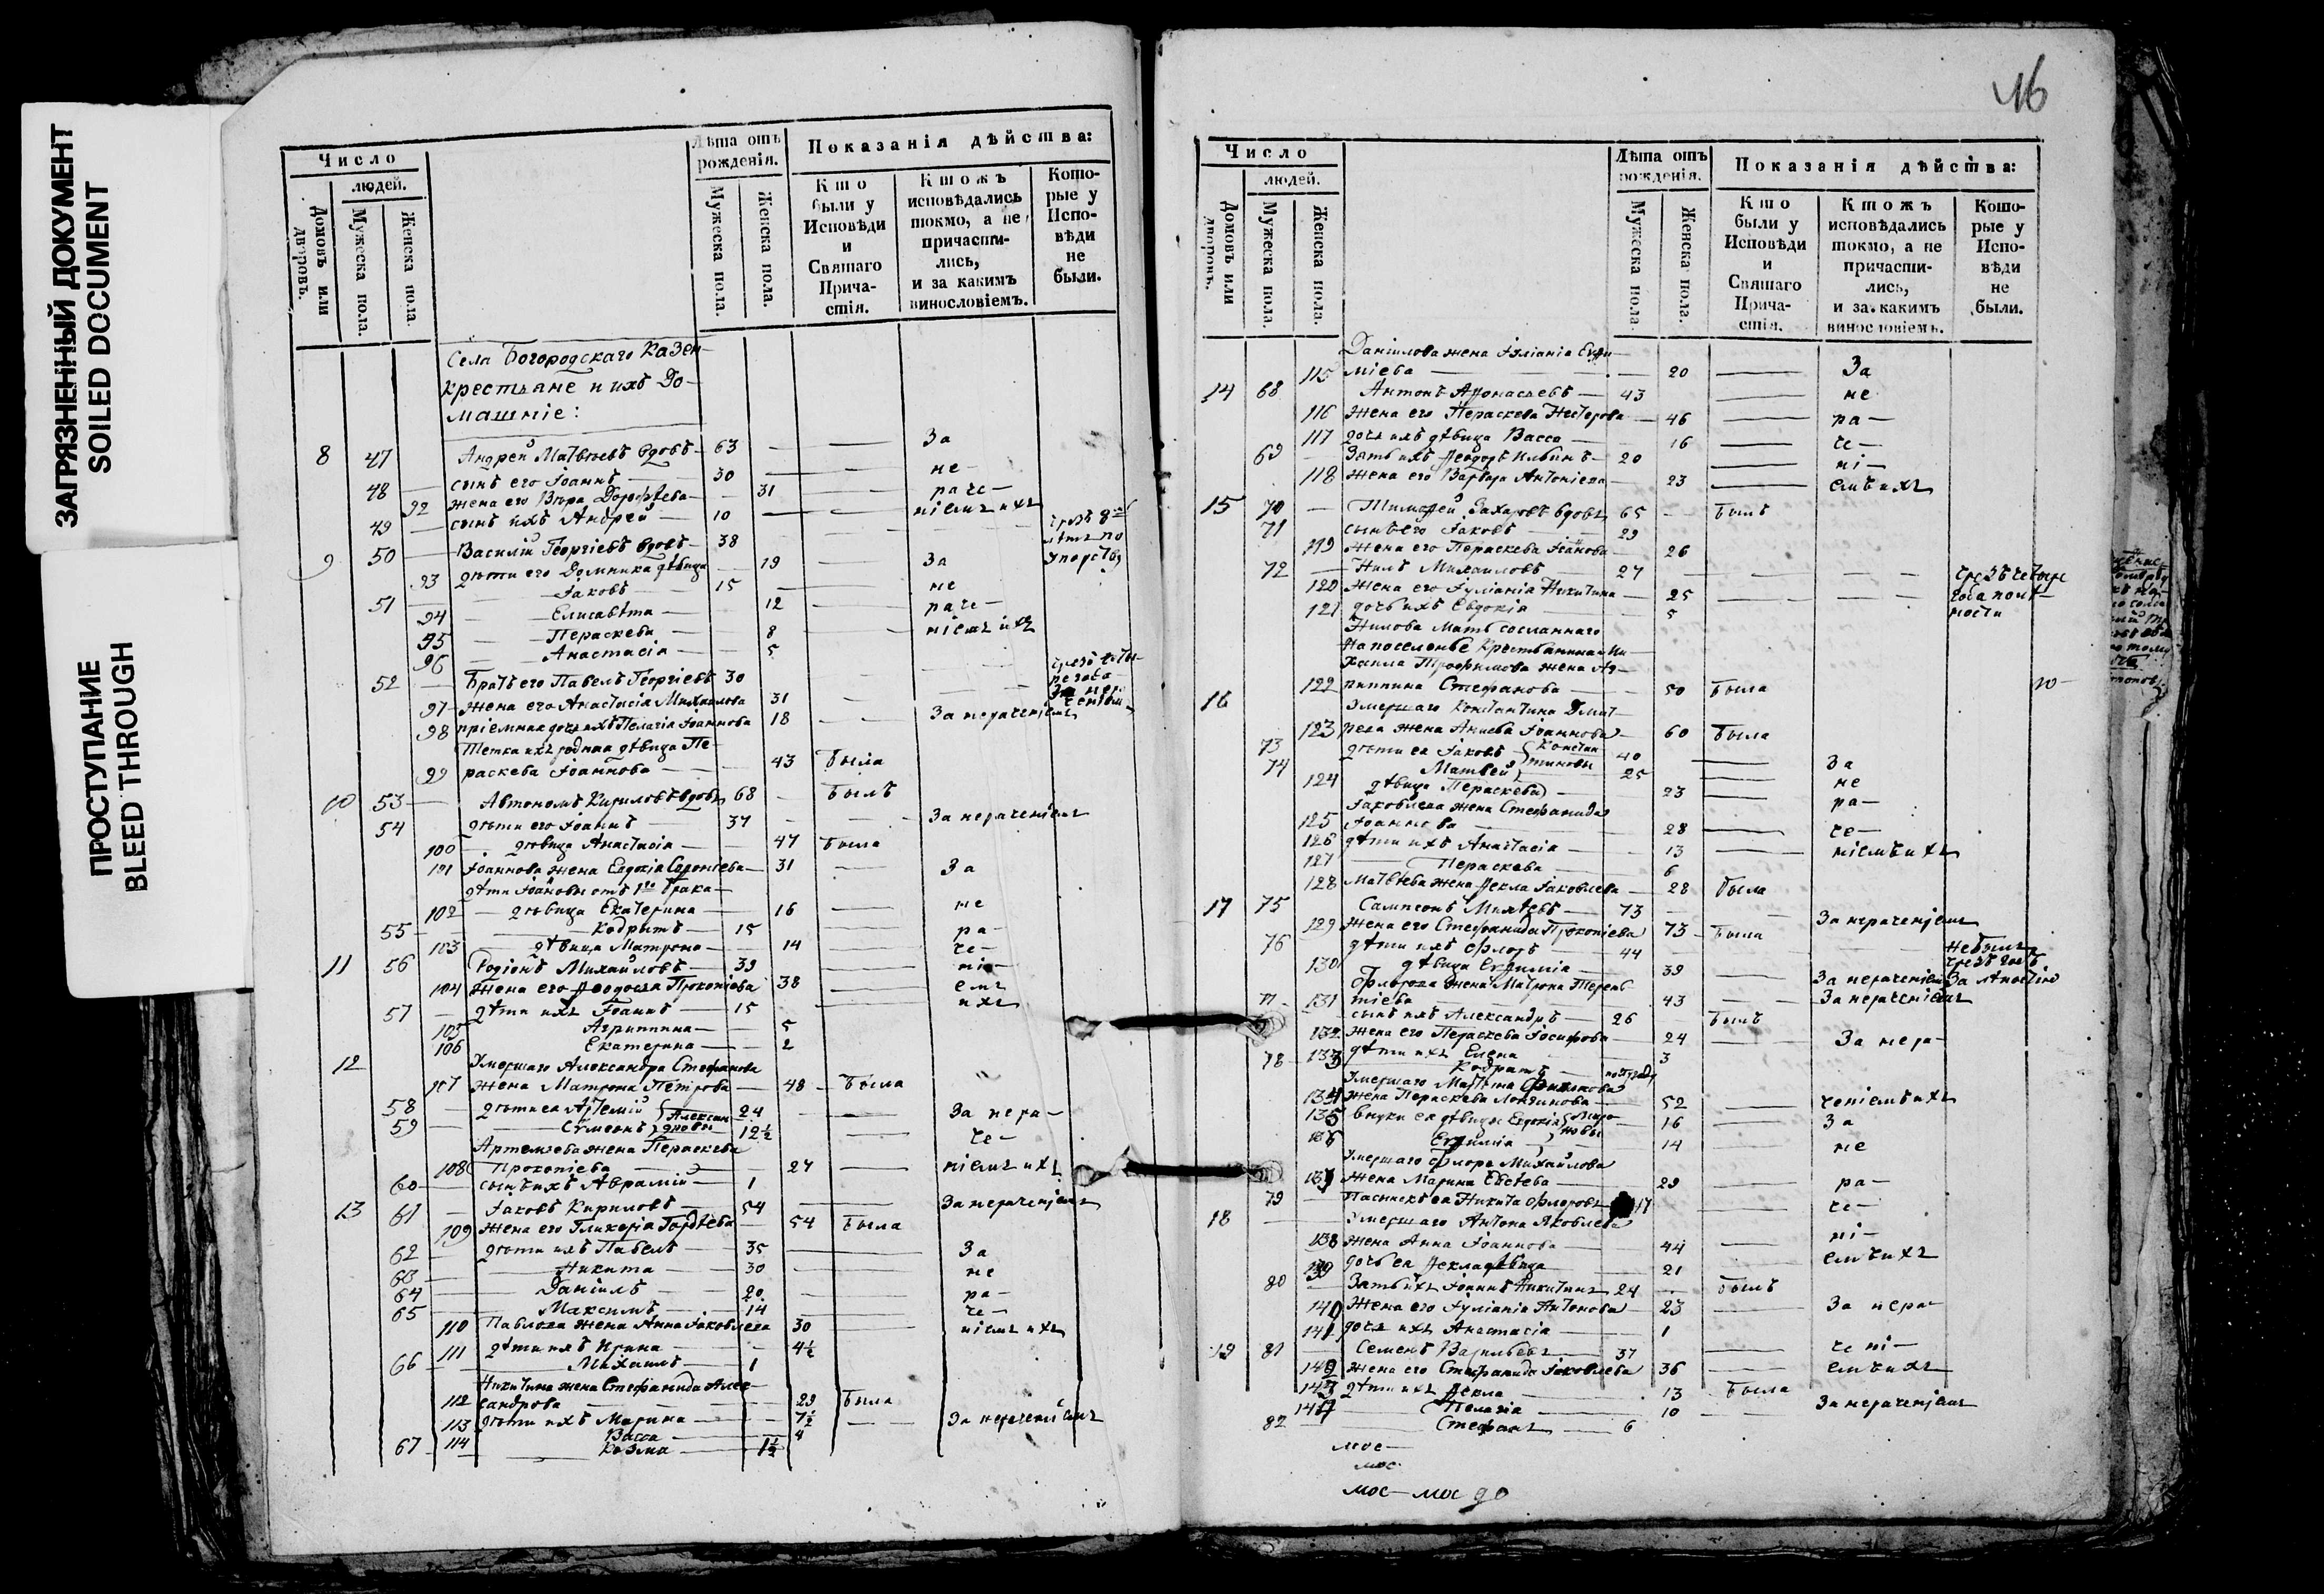 ЗАГРЯЗНЕННЫЙ ДОКУМЕНТ
SOILED DOCUMENT
ПРОСТУПАНИЕ
BLEED THROUGH
Число
людей.
Домовъ или дворовъ.
Мужеска пола.
Женска пола.
Лѣта отъ рожденія.
Мужеска пола.
Женска пола.
Показанія дѣйства:
Кто были у Исповѣди и Святаго Причастія.
Ктожъ исповѣдались токмо, а не причастились, и за какимъ винословіемъ.
Которые у Исповѣди не были.
Села Богородскаго Казен-
крестьяне и ихъ до-
машніе:
8 47 Андрей Матвѣевъ вдовъ 63 За
48 сынъ его Іоаннъ 30 не-
92 жена его Вѣра Дорофѣева 31 раче-
49 сынъ ихъ Андрей 10 ніемъ ихъ
9 50 Василій Георгіевъ вдовъ 38 упорству
93 дѣти его Домника дѣвица 19 За
51 Іаковъ 15 не
94 Елисавѣта 12 раче-
95 Параскева 8 ніемъ ихъ
96 Анастасія 5
52 Братъ его Павелъ Георгіевъ 30
97 жена его Анастасія Михаилова 31
98 пріемная дочь ихъ Пелагія Іоаннова 18 За нераченіемъ
Тетка ихъ родная дѣвица Пе-
99 раскева Іоаннова 43 Была
10 53 Автономъ Кириловъ вдовъ 68 Былъ
54 дѣти его Іоаннъ 37 За нераченіемъ
100 дѣвица Анастасія 47 Была
101 Іоаннова жена Евдокія Софоніева 31 За
дѣти Іоанновы отъ 1го брака
102 дѣвица Екатерина 16 не
55 Кодратъ 15 ра-
103 дѣвица Матрона 14 че-
11 56 Родіонъ Михайловъ 39 ні-
104 жена его Феодосья Прокопіева 38 емъ
57 дѣти ихъ Іоаннъ 15 ихъ
105 Агриппина 5
106 Екатерина 2
12 Умершаго Александра Стефанова
107 жена Матрона Петрова 48 Была
58 дѣти ея Артемій 24 За нера-
59 Сумеонъ 12½ че-
Артемьева жена Пераскева
108 Прокопіева 27 ніемъ ихъ
60 сынъ ихъ Аврамій 1
13 61 Іаковъ Кириловъ 54 За нераченіемъ
109 жена его Гликерія Гордѣева 54 Была
62 дѣти ихъ Павелъ 35 За
63 Никита 30 не
64 Даніилъ 20 ра-
65 Максимъ 14 че-
110 Павлова жена Анна Іаковлева 30 ніемъ ихъ
111 дѣти ихъ Ирина 4½
66 Михаилъ 1
Никитина жена Стефанида Алек-
112 сандрова 29 Была
113 дѣти ихъ Марина 7½ За нераченіемъ
114 Васса 4
67 Козма 1½
16
Число
людей.
Домовъ или дворовъ.
Мужеска пола.
Женска пола.
Лѣта отъ рожденія.
Мужеска пола.
Женска пола.
Показанія дѣйства:
Кто были у Исповѣди и Святаго Причастія.
Ктожъ исповѣдались токмо, а не причастились, и за какимъ винословіемъ.
Которые у Исповѣди не были.
Даніилова жена Іуліанія Евфи-
115 міева 20 За
14 68 Антонъ Афонасьевъ 43 не
116 жена его Пераскева Нестерова 46 ра-
117 дочь ихъ дѣвица Васса 16 че-
69 Зять ихъ Феодоръ Ильинъ 20 ні-
118 жена его Варвара Антоніева 23 емъ ихъ
15 70 Тимофей Захаровъ вдовъ 65 Былъ
71 сынъ его Іаковъ 29
119 жена его Пераскева Іоаннова 26
72 Нилъ Михаиловъ 27
120 жена его Іуліанія Никитина 25
121 дочь ихъ Евдокія 5
Нилова мать сосланнаго
на поселенье крестьянина Ми-
хаила Трофимова жена Аг-
122 риппина Стефанова 50 Была
16 Умершаго Константина Дмит-
123 рева жена Аниса Іоаннова 60 Была
73 дѣти ея Іаковъ 40 За
74 Матвей 25 не
124 дѣвица Пераскева 23 ра-
Іаковлева жена Стефанида
125 Іоаннова 28 че-
126 дѣти ихъ Анастасія 13 ніемъ ихъ
127 Пераскева 6
128 Матвѣева жена Фекла Іаковлева 28 Была
17 75 Сампсонъ 73 За нераченіемъ
129 жена его Стефанида Прокопіева 73 Была
76 дѣти ихъ Флоръ 44
130 дѣвица Евфимія 39 За нераченіемъ
Флорова жена Матрона Терен-
131 тіева 43 За нераченіемъ
77 сынъ ихъ Александръ 26 Былъ
132 жена его Пераскева Іосифова 24 За нера-
133 дѣти ихъ Елена 3
78 Кодратъ
134 жена Пераскева Логгинова 52 ченіемъ ихъ
135 внуки ея дѣвицы Евдокія 16 За
136 Евфимія 14 не
Умершаго Флора Михайлова
137 жена Марина Евсеева 29 ра-
79 Пасынокъ ея Никита Флоровъ 17 че-
18 Умершаго Антона Яковлева
138 жена Анна Іоаннова 44 ні-
139 дочь ея Фекла дѣвица 21 емъ ихъ
80 Зять ихъ Іоаннъ Никитинъ 24 Былъ
140 жена его Іуліанія Антонова 23 За нера-
141 дочь ихъ Анастасія 1
19 81 Семенъ Васильевъ 37 чені-
142 жена его Стефанида Іаковлева 36 емъ ихъ
143 дѣти ихъ Фекла 13 Была
144 Пелагія 10 За нераченіемъ
82 Стефанъ 6
мос-
мос
мос-мос до